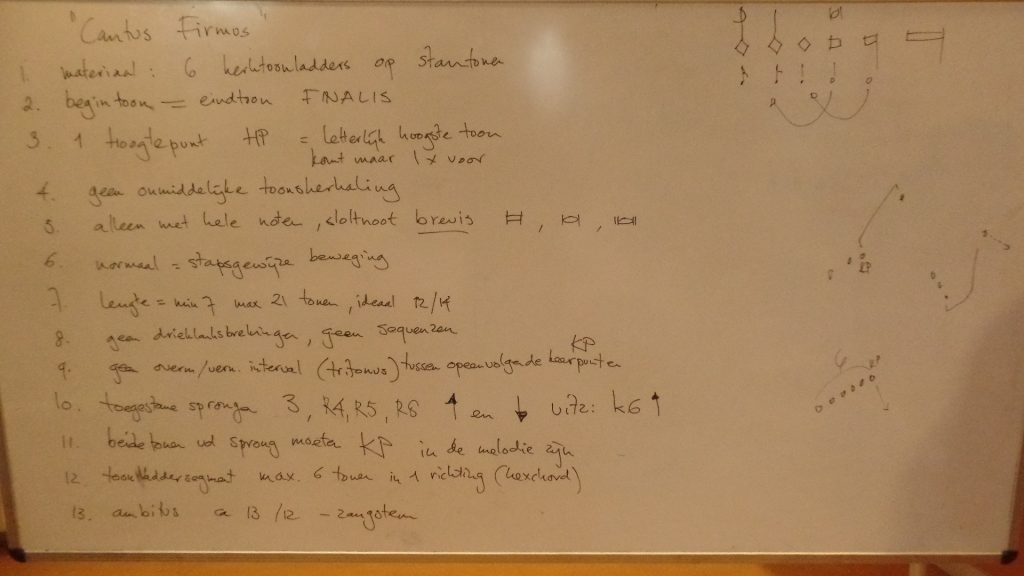 "Cantus Firmus"
1. materiaal: 6 kerktoonladders op stamtonen
2. begintoon = eindtoon FINALIS
3. 1 Hoogtepunt HP = letterlijk hoogste toon
komt maar 1x voor
4. geen onmiddelijke toonsherhaling
5. alleen met hele noten, slotnoot brevis , ,
6. normaal = stapsgewijze beweging
7. lengte = min 7 max 21 tonen, ideaal 12/14
8. geen drieklanksbrekingen, geen sequenzen
KP
9. geen overm/verm. interval (tritonus) tussen opeenvolgende keerpunten
10. toegestane sprongen 3, R4, R5, R8 ↑ en ↓ uitz: k6 ↑
11. beide tonen vd sprong moeten KP in de melodie zijn
12. toonladdersegment max. 6 tonen in 1 richting (hexchord)
13. ambitus ca 13/12 - zangstem
KP
6 KP